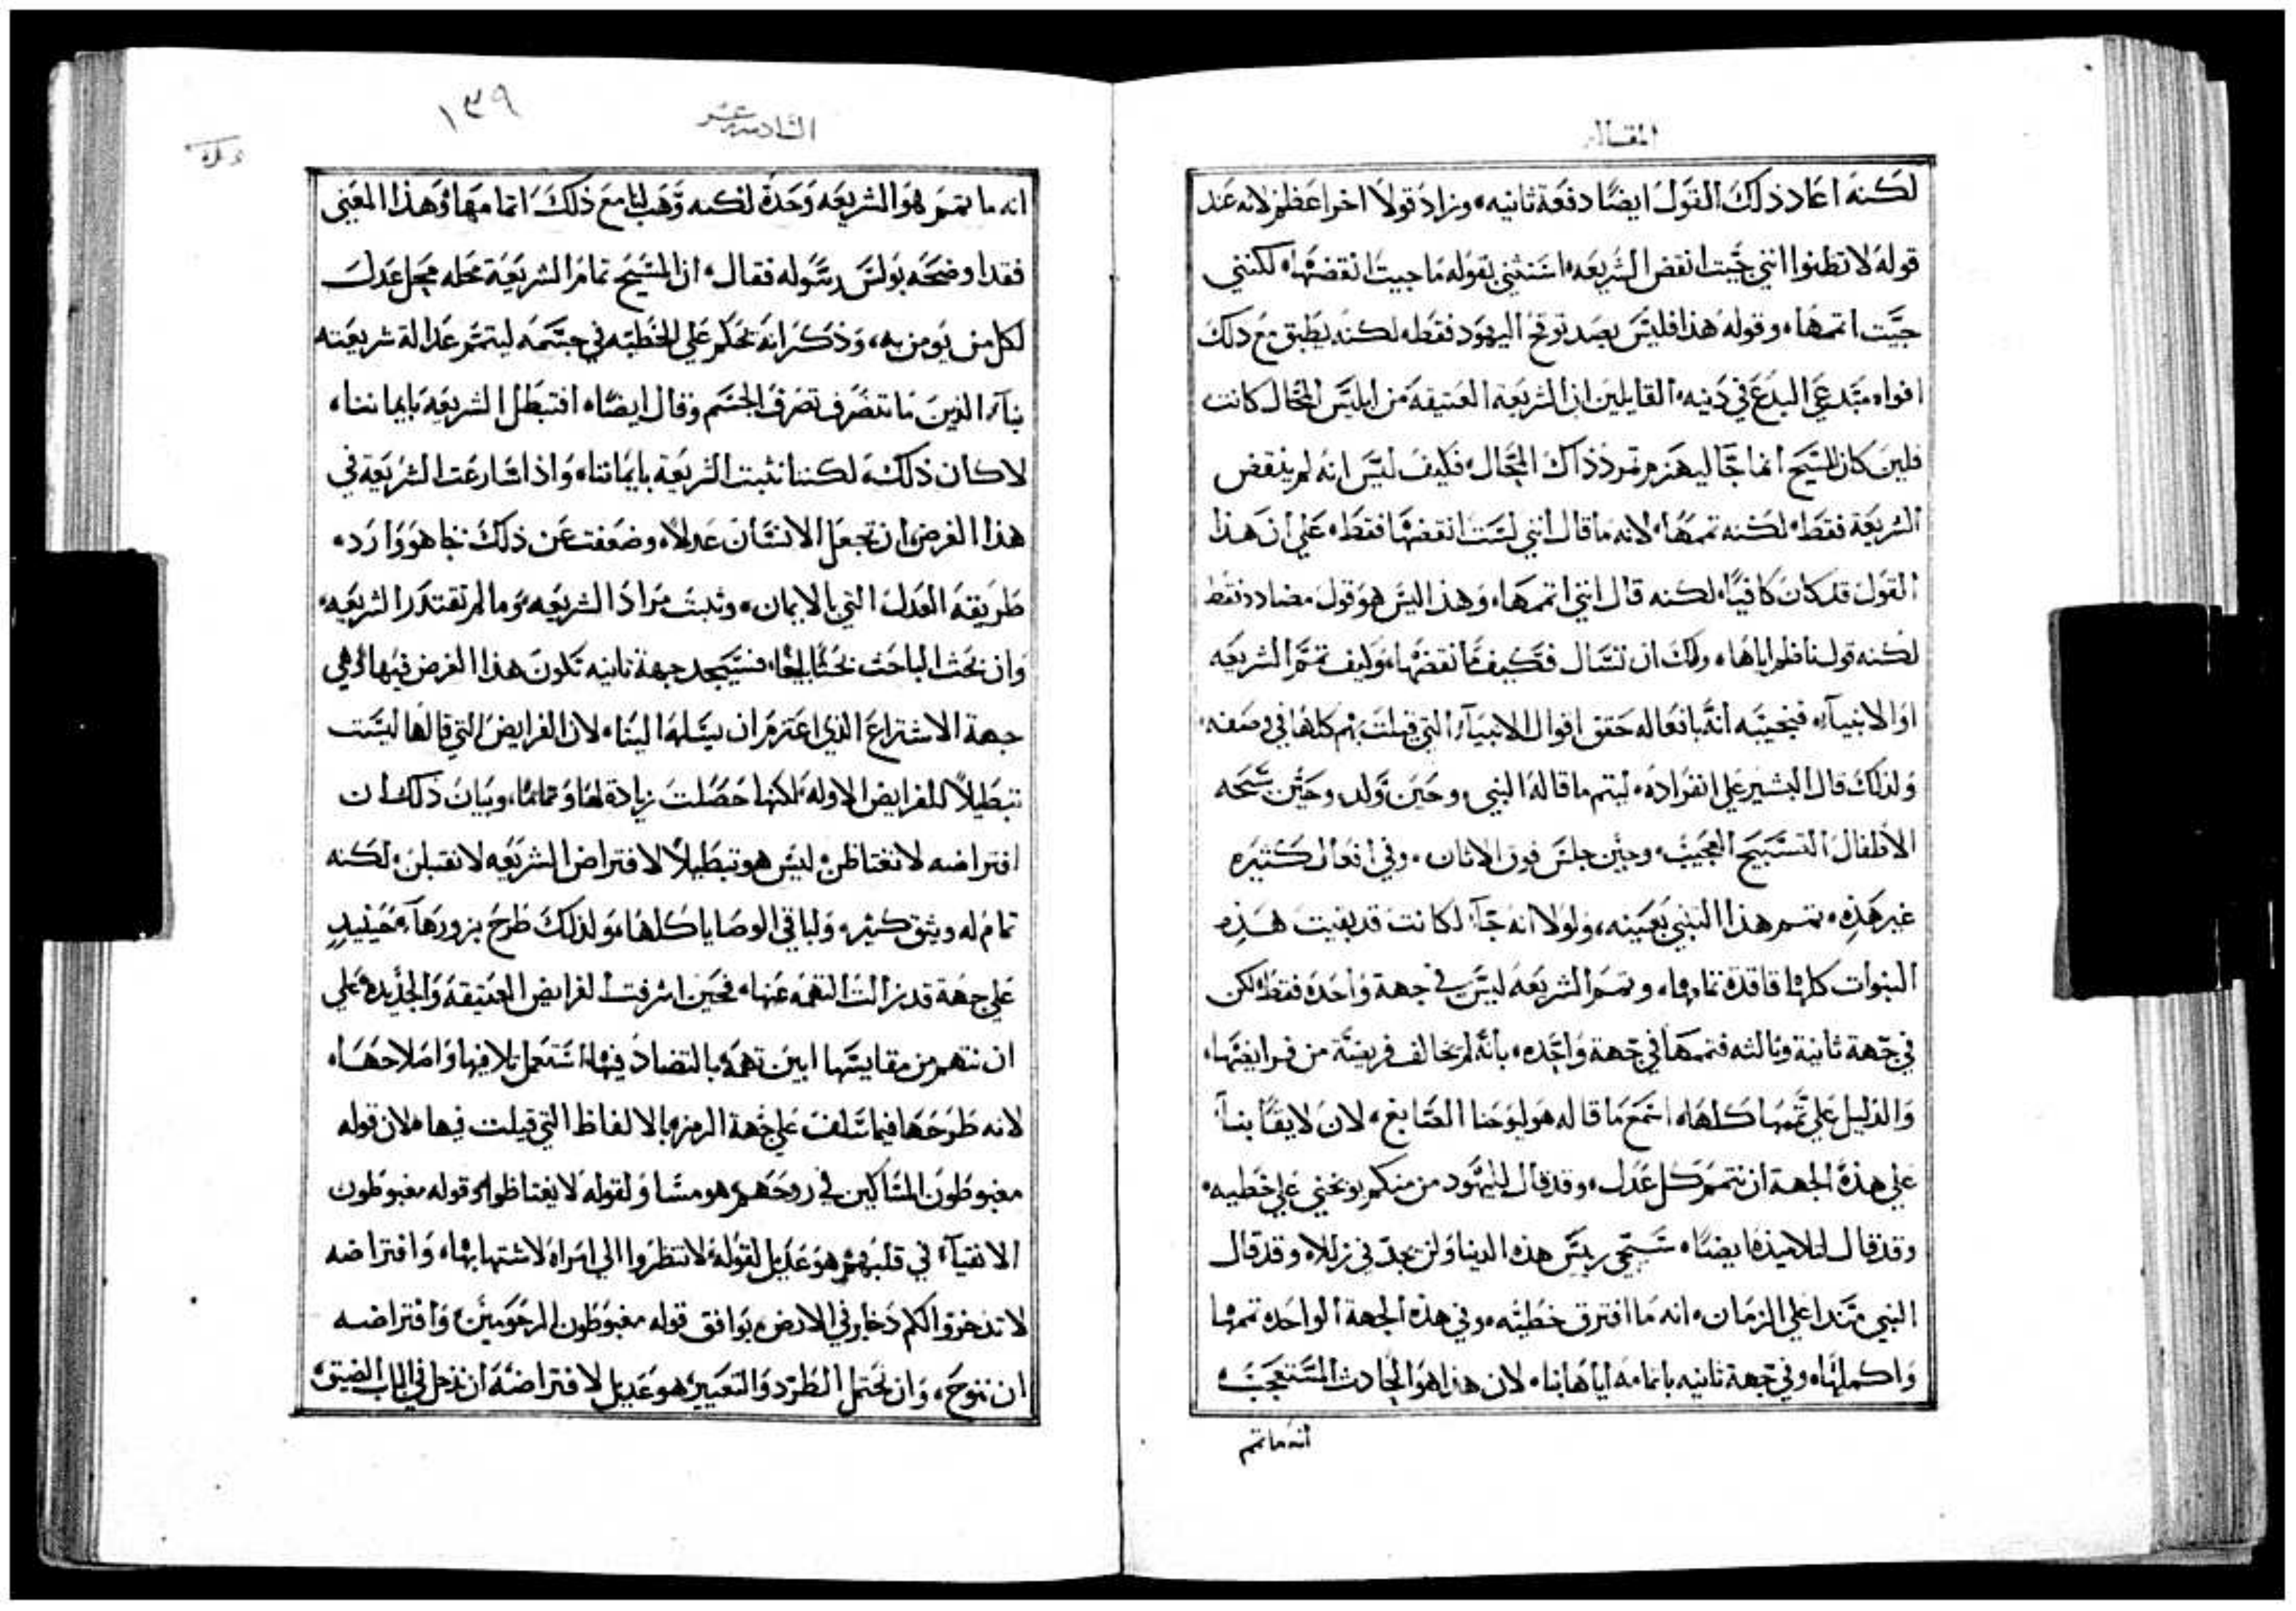 المقالة
لكنه اعاد ذلك القول ايضًا دفعة ثانيه، وزاد قولاً اخر اعظم لانه عند
قوله لا تظنوا انني جيت انقض الشريعه، استثني بقوله ما جيت انقضها، لكنني
جيت اتمها، وقوله هذا فليس يصد توقح اليهود فقط، لكنه يطبق مع ذلك
افواه مبتدعي البدع في دنيه، القايلين ان الشريعة العتيقة من ابليس المحال كانت
فلين كان المسيح انما جا ليهزم تمرد ذاك المحال، فكيف ليس انه لم ينقض
الشريعة فقط، لكنه تممها، لانه ما قال انني لست انقضها فقط، علي ان هذا
القول قد كان كافيًا، لكنه قال انني اتممها، وهذا ليس هو قول مضادد فقط
لكنه قول ناظم اياها، ولك ان تسال فكيف ما نقضها، وكيف تمم الشريعه
او الانبيآ، فنجيبه انه بافعاله حقق اقوال الانبيآ التي قيلت بهم كلها في وصفه،
ولذلك قال البشير علي انفراده، ليتم ما قاله النبي، وحين تولد، وحين سبحه
الاطفال التسبيح العجيب، وحين جلس فوق الاتان، وفي افعال كثيره
غير هذه، تمم هذا التنبي بعينه، ولولا انه جآ لكانت قد بقيت هذه
النبوات كلها فاقدة تمامها، وتمم الشريعه ليس في جهة واحدة فقط، لكن
في جهة ثانية وثالثه فتممها في جهة واحده، بانه لم يخالف فريضة من فرايضها،
والدليل علي تممها كلها، اسمع ما قاله هو ليوحنا الصابغ، لان لايقًا بنا
علي هذه الجهة ان نتمم كل عدل، وقد قال لليهود من منكم يوبخني علي خطيه،
وقد قال لتلاميذه ايضًا، سيجي ريس هذه الدنيا ولن يجد في زللا، وقد قال
النبي متدا علي الزمان، انه ما اقترف خطيه، وفي هذه الجهة الواحده تممها
واكملها، وفي جهة ثانيه باتمامه اياها بنا، لان هذا هو الحادث المستعجب،
انه ما تمم
السادسه عشر
١٣٩
انه ما تمم هو الشريعه وحدة لكنه وهب لنا مع ذلك اتمامها، وهذا المعني
فقد اوضحه بولس رسوله فقال، ان المسيح تمام الشريعة محله محل عدل
لكل من يومن به، وذكر انه تحكم علي الخطيه في جسمه ليتمم عدالة شريعته
بنآ، الذين ما نتصرف تصرف الجسم وقال ايضًا، افتبطل الشريعه بايماننا،
لا كان ذلك، لكننا نثبت الشريعة بايماننا، واذا سارعت الشريعة في
هذا الغرض، ان تجعل الانسان عدلاً، وضعفت عن ذلك فجا هو واورد،
طريقة العدل التي بالايمان، وثبت مراد الشريعه، وما لم تقتدر الشريعه،
وان بحث الباحث بحثًا بليغًا، فسيجد جهة ثانيه تكون هذا الغرض فيها، وهي
جهة الاشتراع الذي اعتزم ان يسلمها الينا، لان الفرايض التي قالها ليست
تبطيلاً للفرايض الاوله، لكنها حصلت زيادة لها وتمامًا، وبيان ذلك ان
افتراضه لا نغتاظن، ليس هو تبطيلاً لافتراض الشريعه لا نقتلن، لكنه
تمام له وثيق كثير، ولباقي الوصايا كلها، ولذلك طرح بزورهآ، حينيدٍ
علي جهة قد زالت التهمه عنها، فحين اشرفت الفرايض العتيقة والجديده علي
ان نتهم من مقايستها ابين تهمه بالتضاد فيها، استعمل تلافيها واصلاحها،
لانه طرحها فيما سلف علي جهة الرمز، بالالفاظ التي قيلت فيها، لان قوله
مغبوطون المساكين في روحهم، هو مساوٍ لقوله لا يغتاظوا، وقوله مغبوطون
الانقيآ في قلبهم، هو عديل لقوله لا تنظروا الي امراة لاشتهايها، وافتراضه
لا تدخروا لكم ذخاير في الارض، يوافق قوله مغبوطون المرحومين، وافتراضه
ان ننوح، وان نحتمل الطرد والتعيير، هو عديل لافتراضه ان ندخل في الباب الضيق،